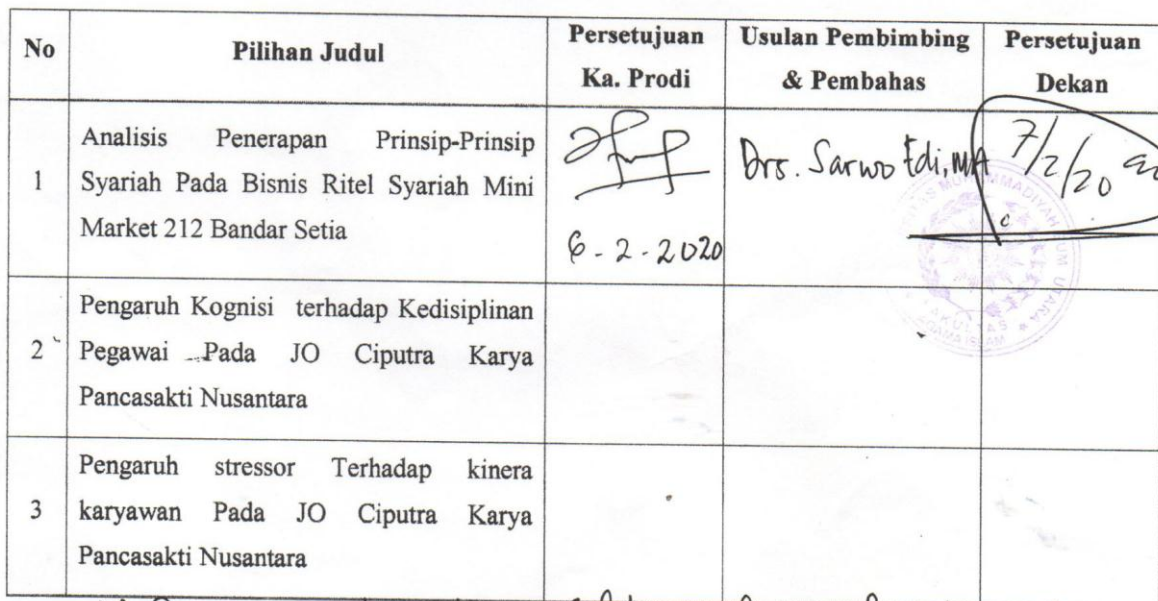 No
Pilihan Judul
Persetujuan
Ka. Prodi
Usulan Pembimbing
& Pembahas
Persetujuan
Dekan
1
Analisis Penerapan Prinsip-Prinsip
Syariah Pada Bisnis Ritel Syariah Mini
Market 212 Bandar Setia
6-2-2020
Drs. Sarwo Edi, MA
7/2/20
MUHAMMADIYAH SUM UTARA
FAKULTAS
AGAMA ISLAM
2
Pengaruh Kognisi terhadap Kedisiplinan
Pegawai Pada JO Ciputra Karya
Pancasakti Nusantara
3
Pengaruh stressor Terhadap kinera
karyawan Pada JO Ciputra Karya
Pancasakti Nusantara